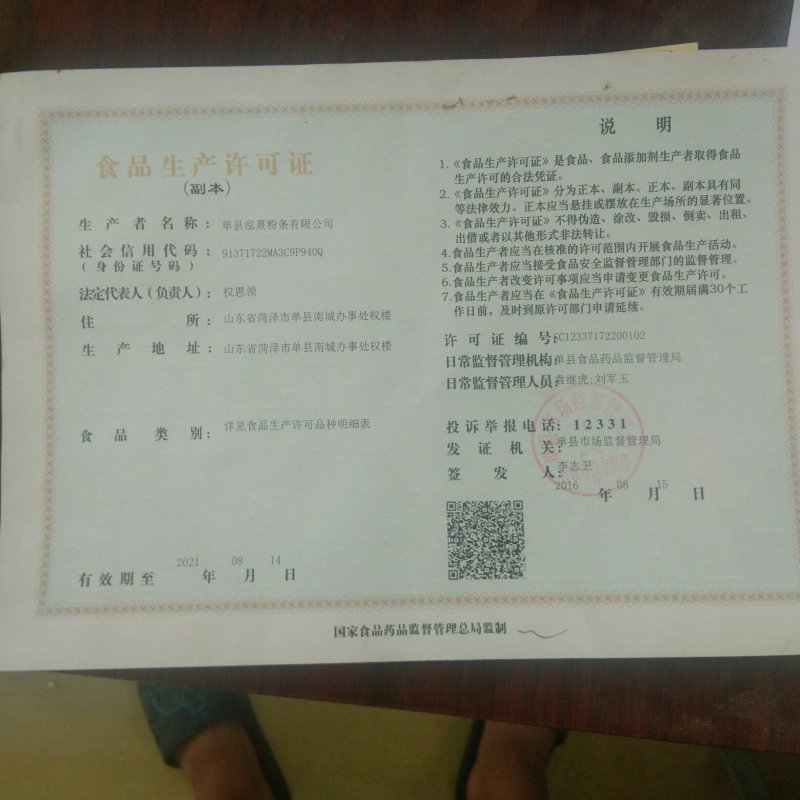 食品生产许可证
(副本)
生产者名称：单县泓熹粉条有限公司
社会信用代码：91371722MA3C9P940Q
(身份证号码)
法定代表人(负责人)：权恩领
住所：山东省菏泽市单县南城办事处权楼
生产地址：山东省菏泽市单县南城办事处权楼
食品类别：详见食品生产许可品种明细表
有效期至 2021年08月14日
说明
1.《食品生产许可证》是食品、食品添加剂生产者取得食品
生产许可的合法凭证。
2.《食品生产许可证》分为正本、副本。正本、副本具有同
等法律效力。正本应当悬挂或摆放在生产场所的显著位置。
3.《食品生产许可证》不得伪造、涂改、毁损、倒卖、出租、
出借或者以其他形式非法转让。
4.食品生产者应当在核准的许可范围内开展食品生产活动。
5.食品生产者应当接受食品安全监督管理部门的监督管理。
6.食品生产者改变许可事项应当申请变更食品生产许可。
7.食品生产者应当在《食品生产许可证》有效期届满30个工
作日前，及时到原许可部门申请延续。
许可证编号：SC12337172200102
日常监督管理机构：单县食品药品监督管理局
日常监督管理人员：袁维虎;刘军玉
投诉举报电话：12331
发证机关：单县市场监督管理局
签发人：李志卫
2016年08月15日
国家食品药品监督管理总局监制